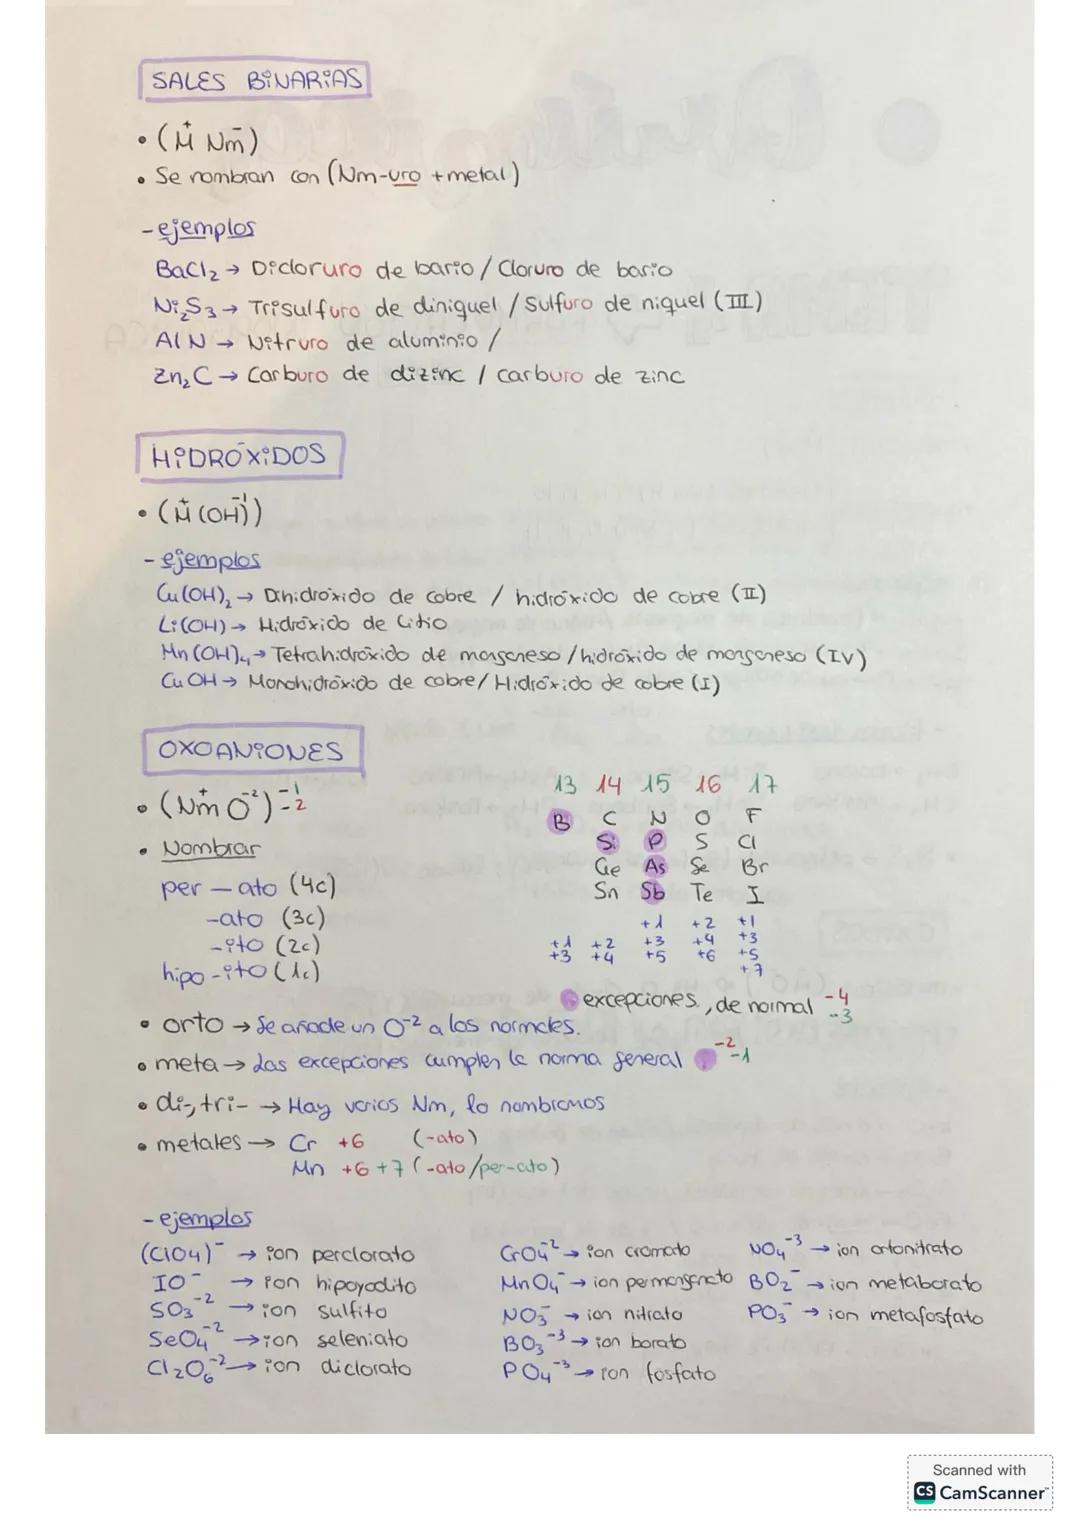 SALES BINARIAS
• (M⁺ Nm⁻)
• Se nombran con (Nm-uro + metal)
- ejemplos
BaCl₂ → Dicloruro de bario / Cloruro de bario
Ni₂S₃ → Trisulfuro de diniquel / Sulfuro de niquel (III)
AlN → Nitruro de aluminio /
Zn₂C → Carburo de dizinc / carburo de zinc
HIDRÓXIDOS
• (M⁺(OH)⁻¹)
- ejemplos
Cu(OH)₂ → Dihidróxido de cobre / hidróxido de cobre (II)
Li(OH) → Hidróxido de Litio
Mn(OH)₄ → Tetrahidróxido de manganeso / hidróxido de manganeso (IV)
CuOH → Monohidróxido de cobre / Hidróxido de cobre (I)
OXOANIONES
• (Nm⁺ O⁻²)⁻¹₋₂
• Nombrar
per - ato (4c)
-ato (3c)
-ito (2c)
hipo -ito (1c)
13 14 15 16 17
B C N O F
Si P S Cl
Ge As Se Br
Sn Sb Te I
+1 +2 +1
+1 +2 +3 +4 +3
+3 +4 +5 +6 +5
+7
excepciones, de normal -4 -3
• orto → Se añade un O⁻² a los normales.
• meta → Las excepciones cumplen la norma general -2 -1
• di-, tri- → Hay varios Nm, lo nombramos
• metales → Cr +6 (-ato)
Mn +6 +7 (-ato/per-ato)
- ejemplos
(ClO4)⁻ → ion perclorato
IO⁻ → ion hipoyodito
SO₃⁻² → ion sulfito
SeO₄⁻² → ion seleniato
Cl₂O₆⁻² → ion diclorato
CrO₄⁻² → ion cromato
MnO₄⁻ → ion permanganato
NO₃⁻ → ion nitrato
BO₃⁻³ → ion borato
PO₄⁻³ → ion fosfato
NO₄⁻³ → ion ortonitrato
BO₂⁻ → ion metaborato
PO₃⁻ → ion metafosfato
Scanned with
CS CamScanner™